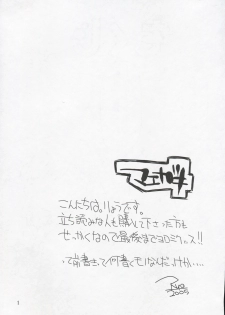 マエガキ
こんにちは。りょうです。
立ち読みな人も購入して下さった方も
せっかくなので最後までヨロシクっス!!
って前書きって何書くモンなんだ
2005